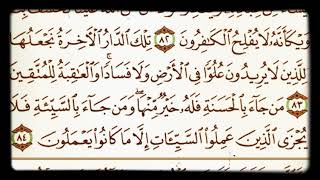 وَيْكَأَنَّهُ لَا يُفْلِحُ الْكَافِرُونَ ٨٢ تِلْكَ الدَّارُ الْآخِرَةُ نَجْعَلُهَا
لِلَّذِينَ لَا يُرِيدُونَ عُلُوًّا فِي الْأَرْضِ وَلَا فَسَادًا وَالْعَاقِبَةُ لِلْمُتَّقِينَ
٨٣ مَن جَاءَ بِالْحَسَنَةِ فَلَهُ خَيْرٌ مِّنْهَا وَمَن جَاءَ بِالسَّيِّئَةِ فَلَا
يُجْزَى الَّذِينَ عَمِلُوا السَّيِّئَاتِ إِلَّا مَا كَانُوا يَعْمَلُونَ ٨٤